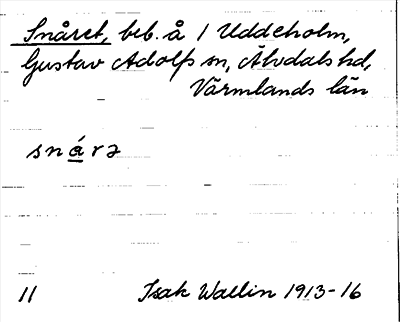 Snåret, beb. å 1 Uddeholm,
Gustav Adolfs sn, Älvdals hd,
Värmlands län
snárə
11 Isak Wallin 1913-16